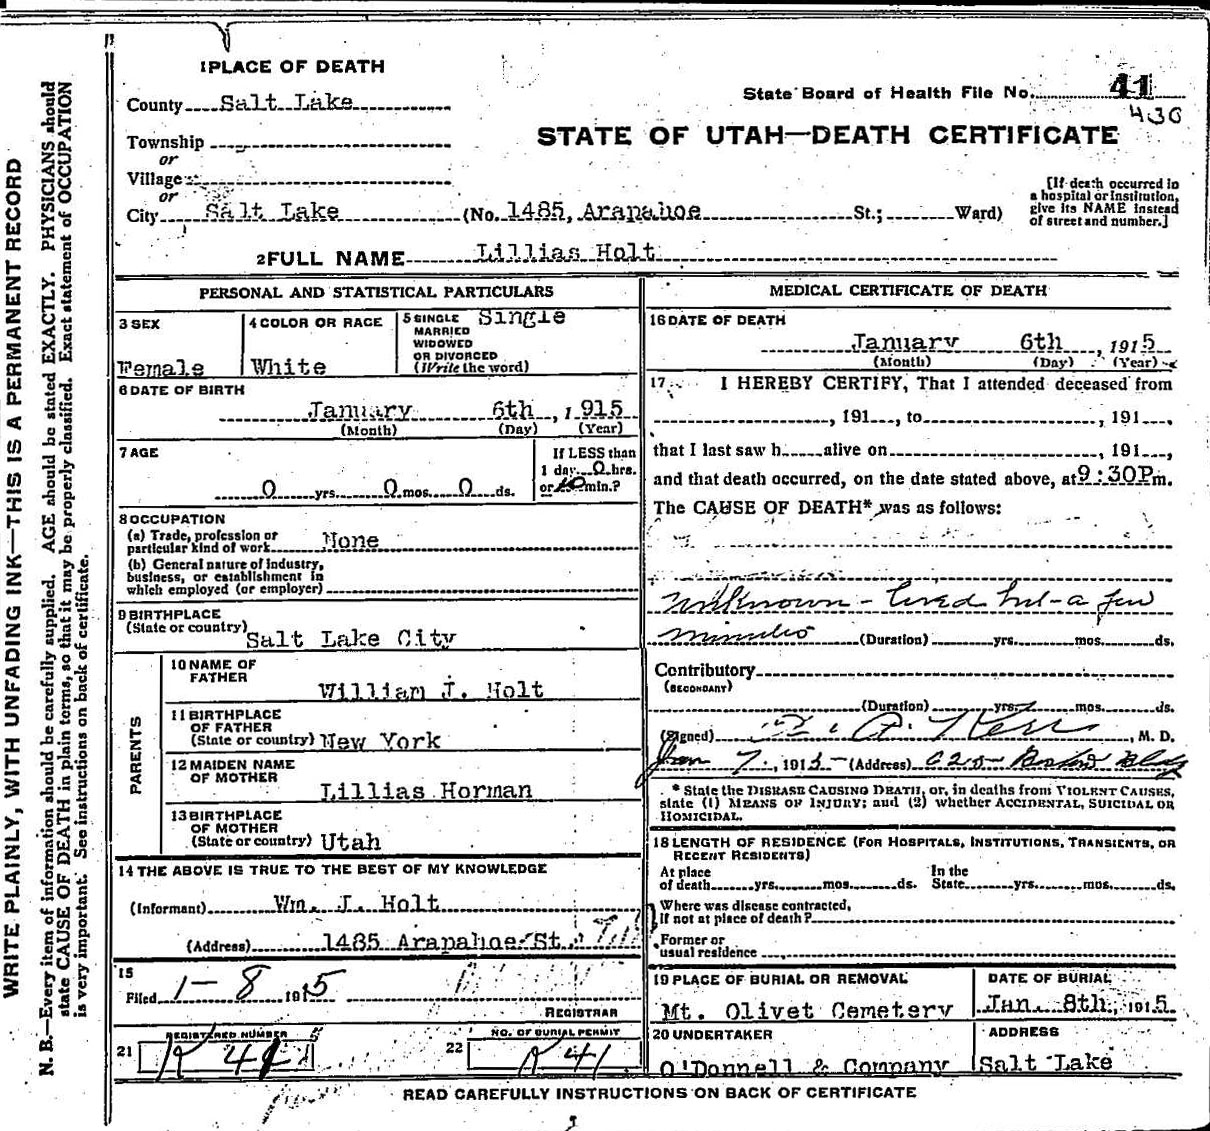 1 PLACE OF DEATH
County Salt Lake
State Board of Health File No. 41
430
STATE OF UTAH—DEATH CERTIFICATE
Township
or
Village
or
City Salt Lake (No. 1485, Arapahoe St.; Ward)
[If death occurred in
a hospital or institution,
give its NAME instead
of street and number.]
2 FULL NAME Lillias Holt
PERSONAL AND STATISTICAL PARTICULARS
3 SEX
Female
4 COLOR OR RACE
White
5 SINGLE
MARRIED
WIDOWED
OR DIVORCED
(Write the word)
Single
6 DATE OF BIRTH
January 6th, 1915
(Month) (Day) (Year)
7 AGE
0 yrs. 0 mos. 0 ds.
If LESS than
1 day 0 hrs.
or 10 min.?
8 OCCUPATION
(a) Trade, profession or
particular kind of work None
(b) General nature of industry,
business, or establishment in
which employed (or employer)
9 BIRTHPLACE
(State or country) Salt Lake City
PARENTS
10 NAME OF
FATHER
William J. Holt
11 BIRTHPLACE
OF FATHER
(State or country) New York
12 MAIDEN NAME
OF MOTHER
Lillias Horman
13 BIRTHPLACE
OF MOTHER
(State or country) Utah
14 THE ABOVE IS TRUE TO THE BEST OF MY KNOWLEDGE
(Informant) Wm. J. Holt
(Address) 1485 Arapahoe St.
15
Filed 1-8 1915
REGISTRAR
21 REGISTERED NUMBER
R 41
22 NO. OF BURIAL PERMIT
R 41
MEDICAL CERTIFICATE OF DEATH
16 DATE OF DEATH
January 6th, 1915
(Month) (Day) (Year)
17 I HEREBY CERTIFY, That I attended deceased from
, 191 , to , 191 ,
that I last saw h alive on , 191 ,
and that death occurred, on the date stated above, at 9:30P m.
The CAUSE OF DEATH* was as follows:
Unknown - lived but a few
minutes (Duration) yrs. mos. ds.
Contributory
(SECONDARY)
(Duration) yrs. mos. ds.
(Signed) Kerr, M. D.
Jan 7, 1915 (Address) Bldg
* State the DISEASE CAUSING DEATH, or, in deaths from VIOLENT CAUSES,
state (1) MEANS OF INJURY; and (2) whether ACCIDENTAL, SUICIDAL OR
HOMICIDAL.
18 LENGTH OF RESIDENCE (FOR HOSPITALS, INSTITUTIONS, TRANSIENTS, OR
RECENT RESIDENTS)
At place In the
of death yrs. mos. ds. State yrs. mos. ds.
Where was disease contracted,
if not at place of death?
Former or
usual residence
19 PLACE OF BURIAL OR REMOVAL
Mt. Olivet Cemetery
DATE OF BURIAL
Jan. 8th, 1915
20 UNDERTAKER
O'Donnell & Company
ADDRESS
Salt Lake
READ CAREFULLY INSTRUCTIONS ON BACK OF CERTIFICATE
WRITE PLAINLY, WITH UNFADING INK—THIS IS A PERMANENT RECORD
N. B.—Every item of information should be carefully supplied. AGE should be stated EXACTLY. PHYSICIANS should
state CAUSE OF DEATH in plain terms, so that it may be properly classified. Exact statement of OCCUPATION
is very important. See instructions on back of certificate.